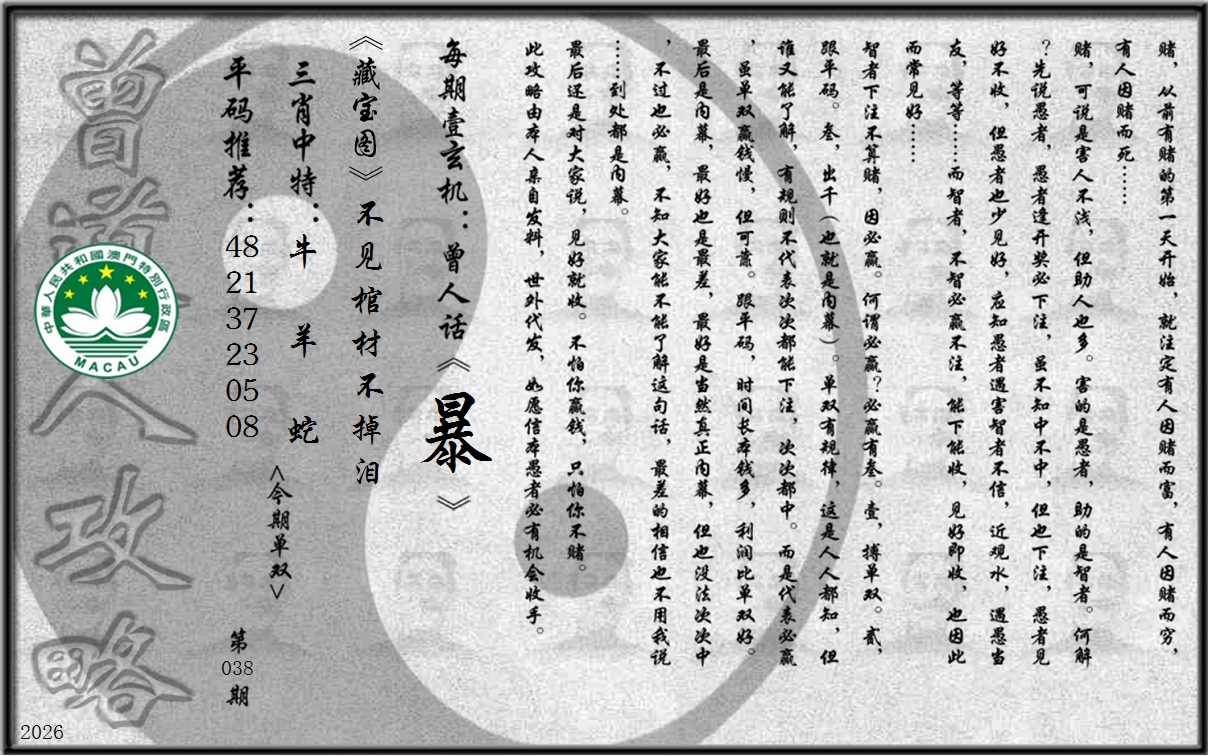 赌，从前有赌的第一天开始，就注定有人因赌而富，有人因赌而穷，
有人因赌而死……
赌，可说是害人不浅，但助人也多。害的是愚者，助的是智者。何解
？先说愚者，愚者逢开奖必下注，虽不知中不中，但也下注，愚者见
好不收，但愚者也少见好，应知愚者遇害智者不信，近观水，遇愚当
友，等等……而智者，不智必赢不注，能下能收，见好即收，也因此
而常见好……
智者下注不算赌，因必赢。何谓必赢？必赢有叁。壹，搏单双。贰，
跟平码。叁，出千（也就是内幕）。单双有规律，这是人人都知，但
谁又能了解，有规则不代表次次都能下注，次次都中。而是代表必赢
，虽单双赢钱慢，但可靠。跟平码，时间长本钱多，利润比单双好。
最后是内幕，最好也是最差，最好是当然真正内幕，但也没法次次中
，不过也必赢，不知大家能不能了解这句话，最差的相信也不用我说
……到处都是内幕。
最后还是对大家说，见好就收。不怕你赢钱，只怕你不赌。
此攻略由本人亲自发料，世外代发，如愿信本愚者必有机会收手。
每期壹玄机：曾人话《暴》
《藏宝图》不见棺材不掉泪
三肖中特：牛 羊 蛇
<今期单双>
平码推荐：48 21 37 23 05 08
第038期
曾道人攻略
中華人民共和國澳門特別行政區
MACAU
2026